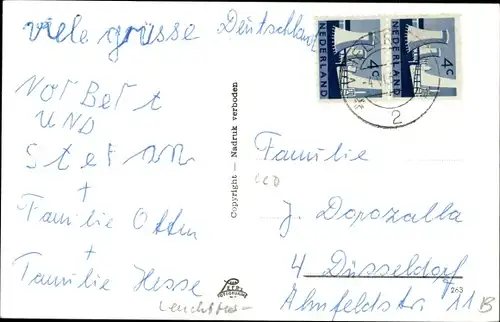 viele grüsse Deutschland
Norbert
UND
Stefan
+
Familie Otten
+
Familie Hesse
Leuchttur-
Copyright — Nadruk verboden
4c
NEDERLAND
4c
NEDERLAND
2
Familie
J. Dopozalla
4 Düsseldorf
Ahnfeldstr. 11 B
263